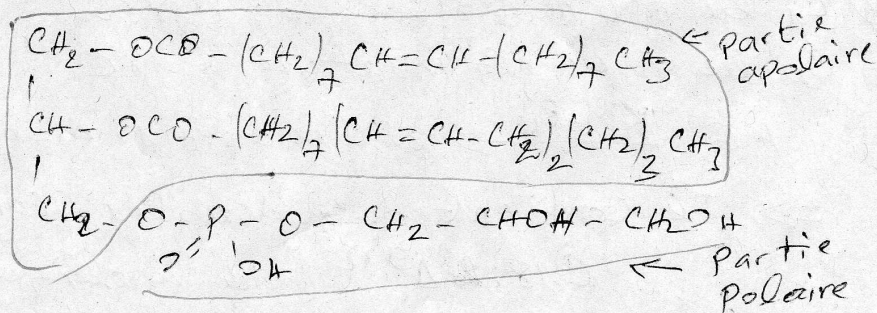 CH2 - OCO - (CH2)7 CH = CH - (CH2)7 CH3 ← partie
apolaire
CH - OCO - (CH2)7 (CH = CH - CH2)2 (CH2)3 CH3
CH2 - O - P - O - CH2 - CHOH - CH2OH
O OH
← Partie
Polaire